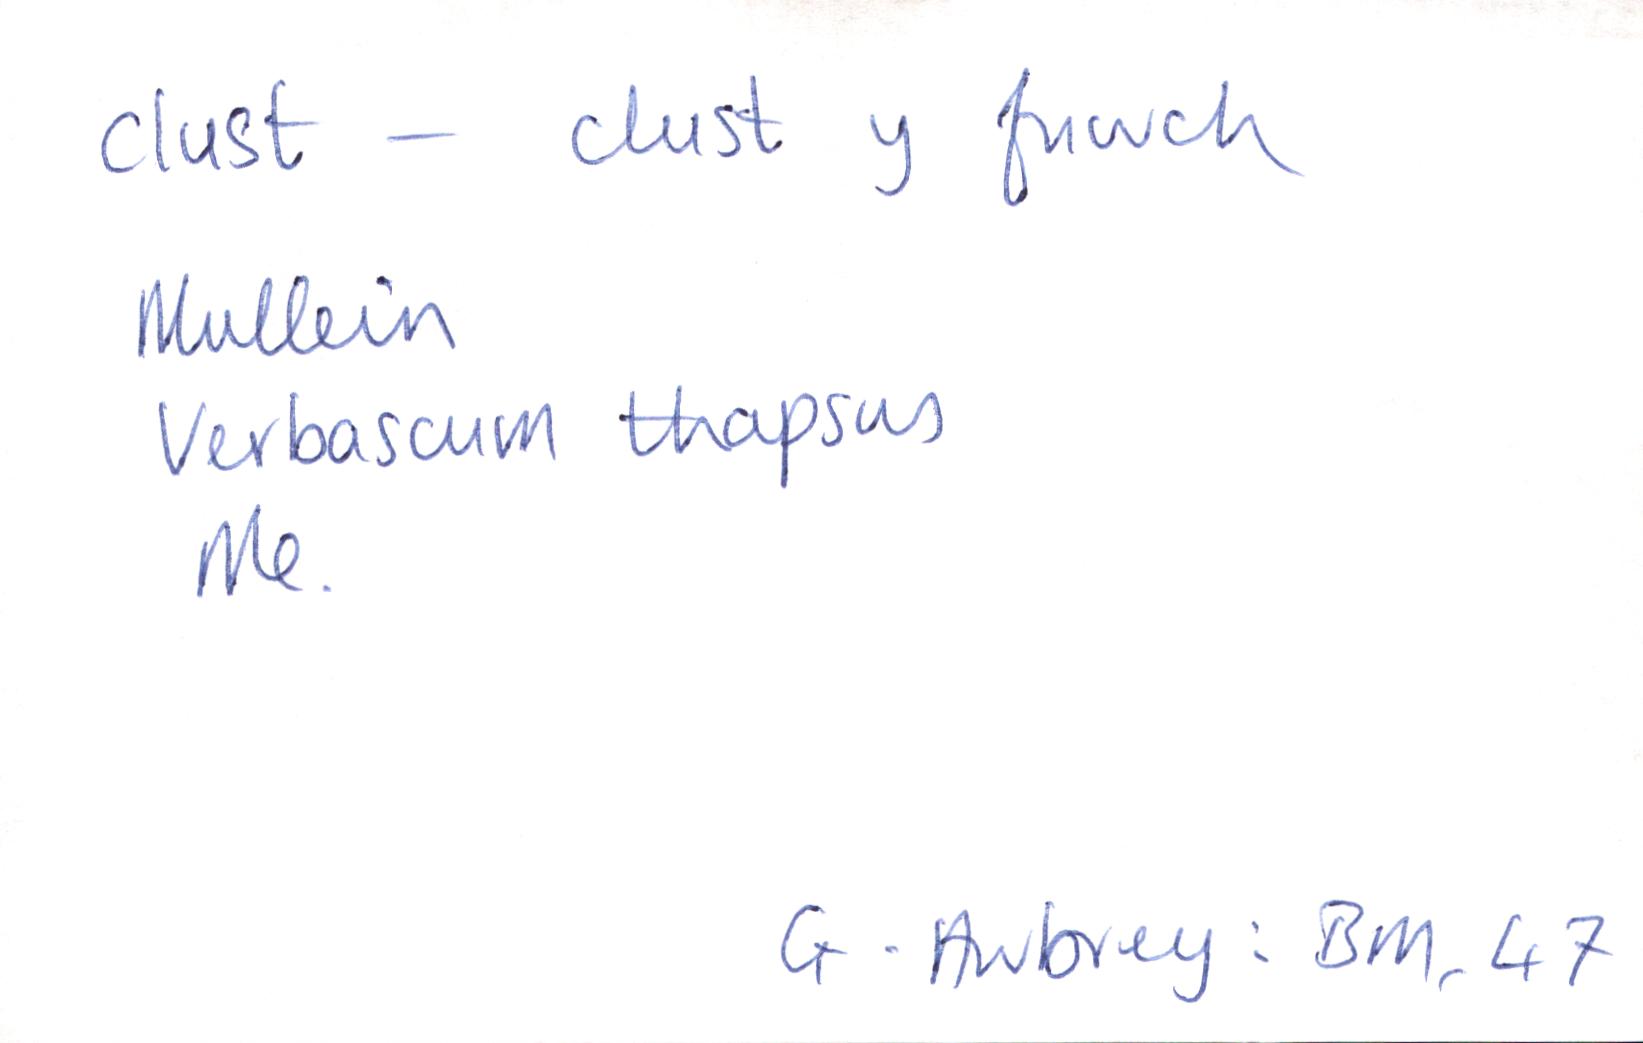 clust – clust y fuwch
Mullein
Verbascum thapsus
Me.
G. Awbrey: BM, 47